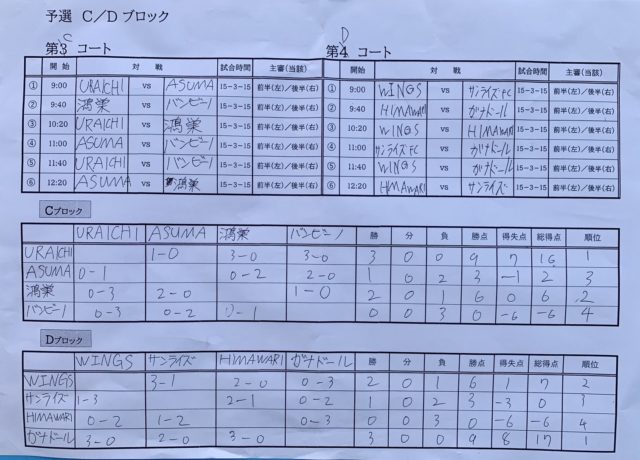 予選 C／D ブロック
C
第3 コート
開始 対戦 試合時間 主審(当該)
① 9:00 URAICHI vs ASUMA 15-3-15 前半(左)／後半(右)
② 9:40 鴻巣 vs バンビーノ 15-3-15 前半(左)／後半(右)
③ 10:20 URAICHI vs 鴻巣 15-3-15 前半(左)／後半(右)
④ 11:00 ASUMA vs バンビーノ 15-3-15 前半(左)／後半(右)
⑤ 11:40 URAICHI vs バンビーノ 15-3-15 前半(左)／後半(右)
⑥ 12:20 ASUMA vs 鴻巣 15-3-15 前半(左)／後半(右)
D
第4 コート
開始 対戦 試合時間 主審(当該)
① 9:00 WINGS vs サンライズFC 15-3-15 前半(左)／後半(右)
② 9:40 HIMAWARI vs ガナドール 15-3-15 前半(左)／後半(右)
③ 10:20 WINGS vs HIMAWARI 15-3-15 前半(左)／後半(右)
④ 11:00 サンライズFC vs ガナドール 15-3-15 前半(左)／後半(右)
⑤ 11:40 WINGS vs ガナドール 15-3-15 前半(左)／後半(右)
⑥ 12:20 HIMAWARI vs サンライズ 15-3-15 前半(左)／後半(右)
Cブロック
URAICHI ASUMA 鴻巣 バンビーノ 勝 分 負 勝点 得失点 総得点 順位
URAICHI 1-0 3-0 3-0 3 0 0 9 7 16 1
ASUMA 0-1 0-2 2-0 1 0 2 3 -1 2 3
鴻巣 0-3 2-0 1-0 2 0 1 6 0 6 2
バンビーノ 0-3 0-2 0-1 0 0 3 0 -6 -6 4
Dブロック
WINGS サンライズ HIMAWARI ガナドール 勝 分 負 勝点 得失点 総得点 順位
WINGS 3-1 2-0 0-3 2 0 1 6 1 7 2
サンライズ 1-3 2-1 0-2 1 0 2 3 -3 0 3
HIMAWARI 0-2 1-2 0-3 0 0 3 0 -6 -6 4
ガナドール 3-0 2-0 3-0 3 0 0 9 8 17 1